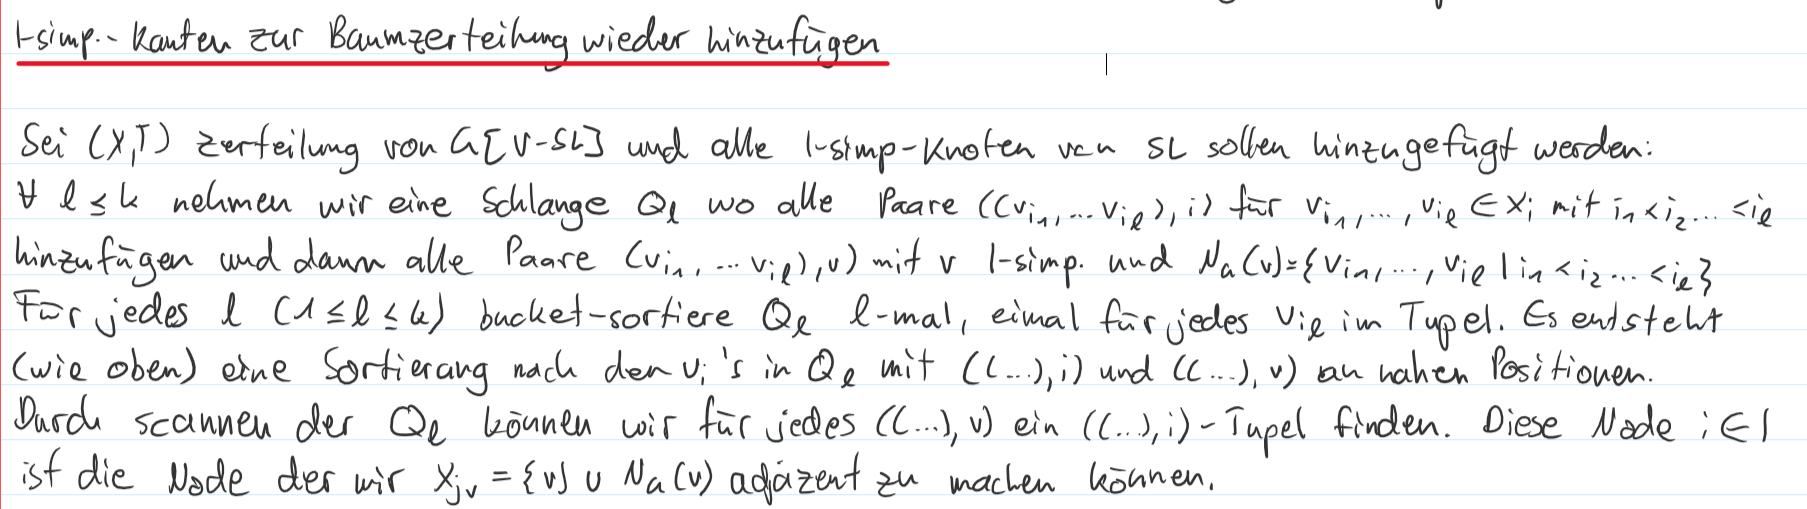 I-simp.-Kanten zur Baumzerteilung wieder hinzufügen
Sei (X,T) Zerteilung von G[V-SL] und alle I-simp-Knoten von SL sollen hinzugefügt werden:
∀ l ≤ k nehmen wir eine Schlange Q_l wo alle Paare ((v_i1, ... v_il), i) für v_i1, ..., v_il ∈ X_i mit i_1 < i_2 ... < i_l
hinzufügen und dann alle Paare (v_i1, ... v_il), v) mit v I-simp. und N_G(v) = {v_i1, ..., v_il | i_1 < i_2 ... < i_l}
Für jedes l (1 ≤ l ≤ k) bucket-sortiere Q_l l-mal, eimal für jedes v_il im Tupel. Es entsteht
(wie oben) eine Sortierung nach den v_i's in Q_l mit ((...), i) und ((...), v) an nahen Positionen.
Durch scannen der Q_l können wir für jedes ((...), v) ein ((...), i)-Tupel finden. Diese Node i ∈ I
ist die Node der wir X_jv = {v} ∪ N_G(v) adjäzent zu machen können.